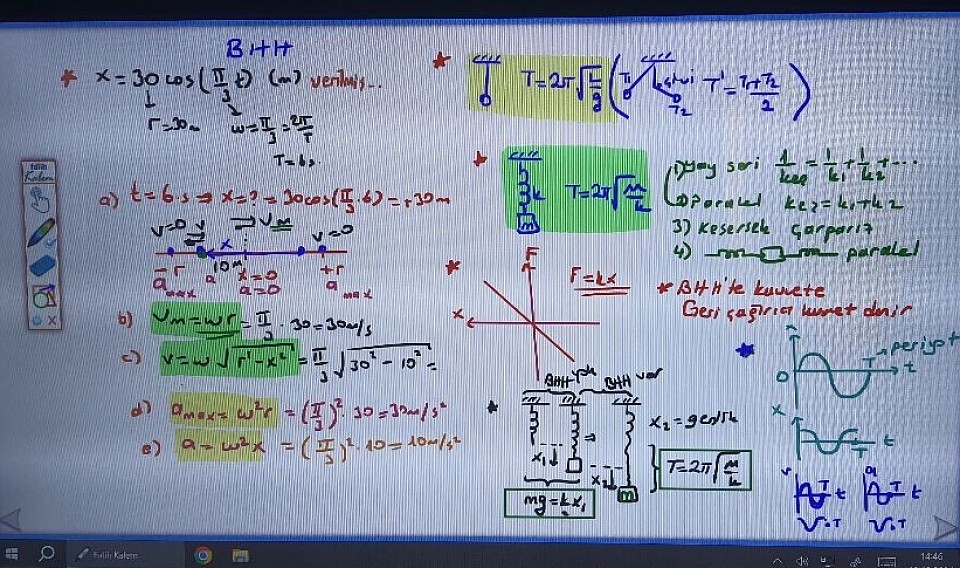 BHH
* x = 30 cos(π/3 t) (m) verilmiş...
r = 30m w = π/3 = 2π/T
T = 6s
a) t = 6s ⇒ x = ? = 30cos(π/3 · 6) = +30m
v=0 v Vm v=0
x
-r a 10m x=0 +r
a max a=0 a max
b) Vm = wr = π/3 · 30 = 30m/s
c) v = w√(r² - x²) = π/3 √(30² - 10²) =
d) a max = w²r = (π/3)² · 30 = 30m/s²
e) a = w²x = (π/3)² · 10 = 10m/s²
* T = 2π√(L/g) (T1 T2 T' = (T1+T2)/2)
* k m T = 2π√(m/k)
1) yay seri 1/keş = 1/k1 + 1/k2 + ...
2) Paralel keş = k1 + k2
3) Kesersek çarparız
4) paralel
* F F = kx
x
* BHH'te kuvvete
Geri çağırıcı kuvvet denir
* BHH yok BHH var
x1 x2 m
x2 = genlik
mg = kx1
T = 2π√(m/k)
* 0 T → periyot
t
x
T t
v T t a T t
Fatih
Kalem
Fatih Kalem
14:46